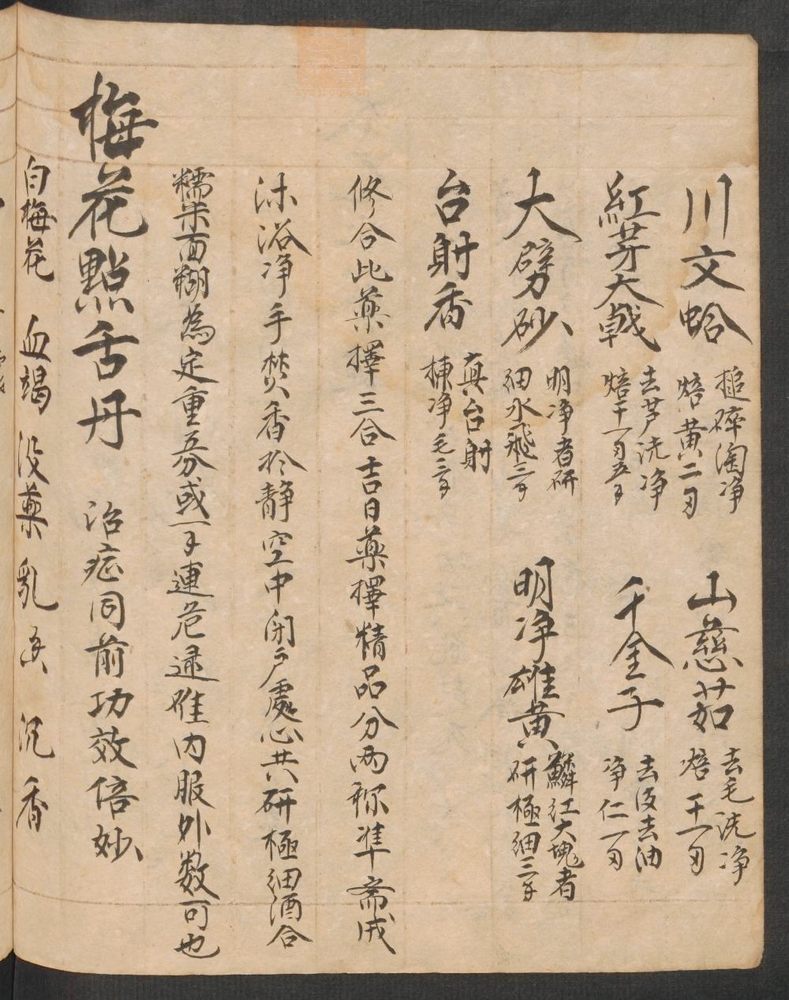 川文蛤 搥碎淘净焙黄二刄 山慈茹 去毛洗净焙干一刄
紅芽大戟 去芦洗净焙干一刄五子 千金子 去皮去油净仁一刄
大劈砂 明净者研細水飛三子 明净雄黄 鱗紅大塊者研極細三子
台射香 真台射揀净毛三子
修合此藥擇三合吉日藥擇精品分两称准斋戒
沐浴净手焚香於静空中閑户處心共研極細酒合
糯米面糊為定重分或一子連危逯雖内服外敷可也
梅花點舌丹 治症同前功效倍妙
白梅花 血竭 没藥 乳香 沉香